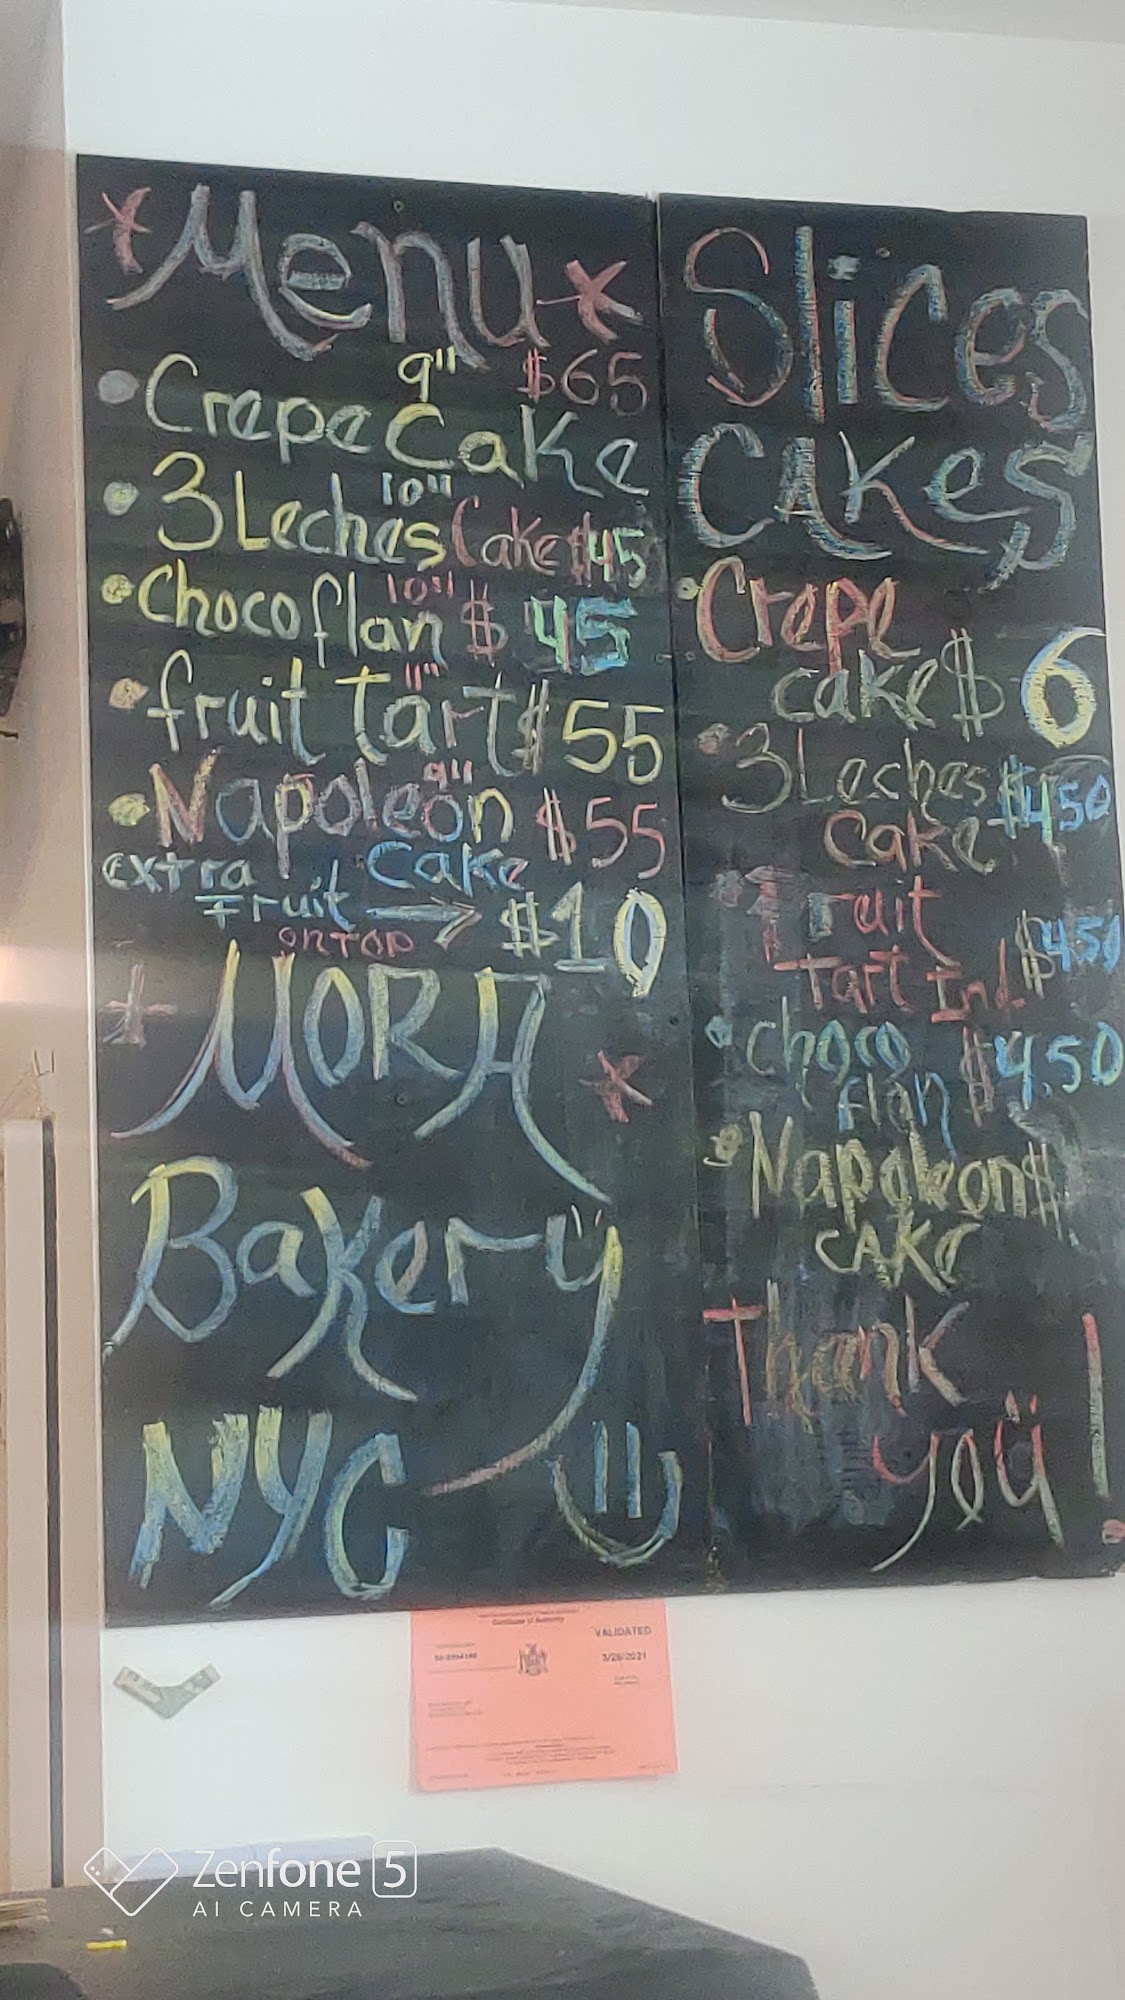 Menu
9" $65
Crepe Cake
10"
3 Leches Cake $45
10"
Chocoflan $45
fruit tart $55
9"
Napoleon $55
Cake
extra
Fruit → $10
ON TOP
MORA
Bakery
NYC
Slices
Cakes
Crepe
cake $6
3 Leches $450
Cake
Fruit $450
tart Ind.
choco $4.50
flan
Napoleon $
CAKE
Thank
you!
Certificate of Authority
VALIDATED
3/26/2021
Zenfone 5
AI CAMERA